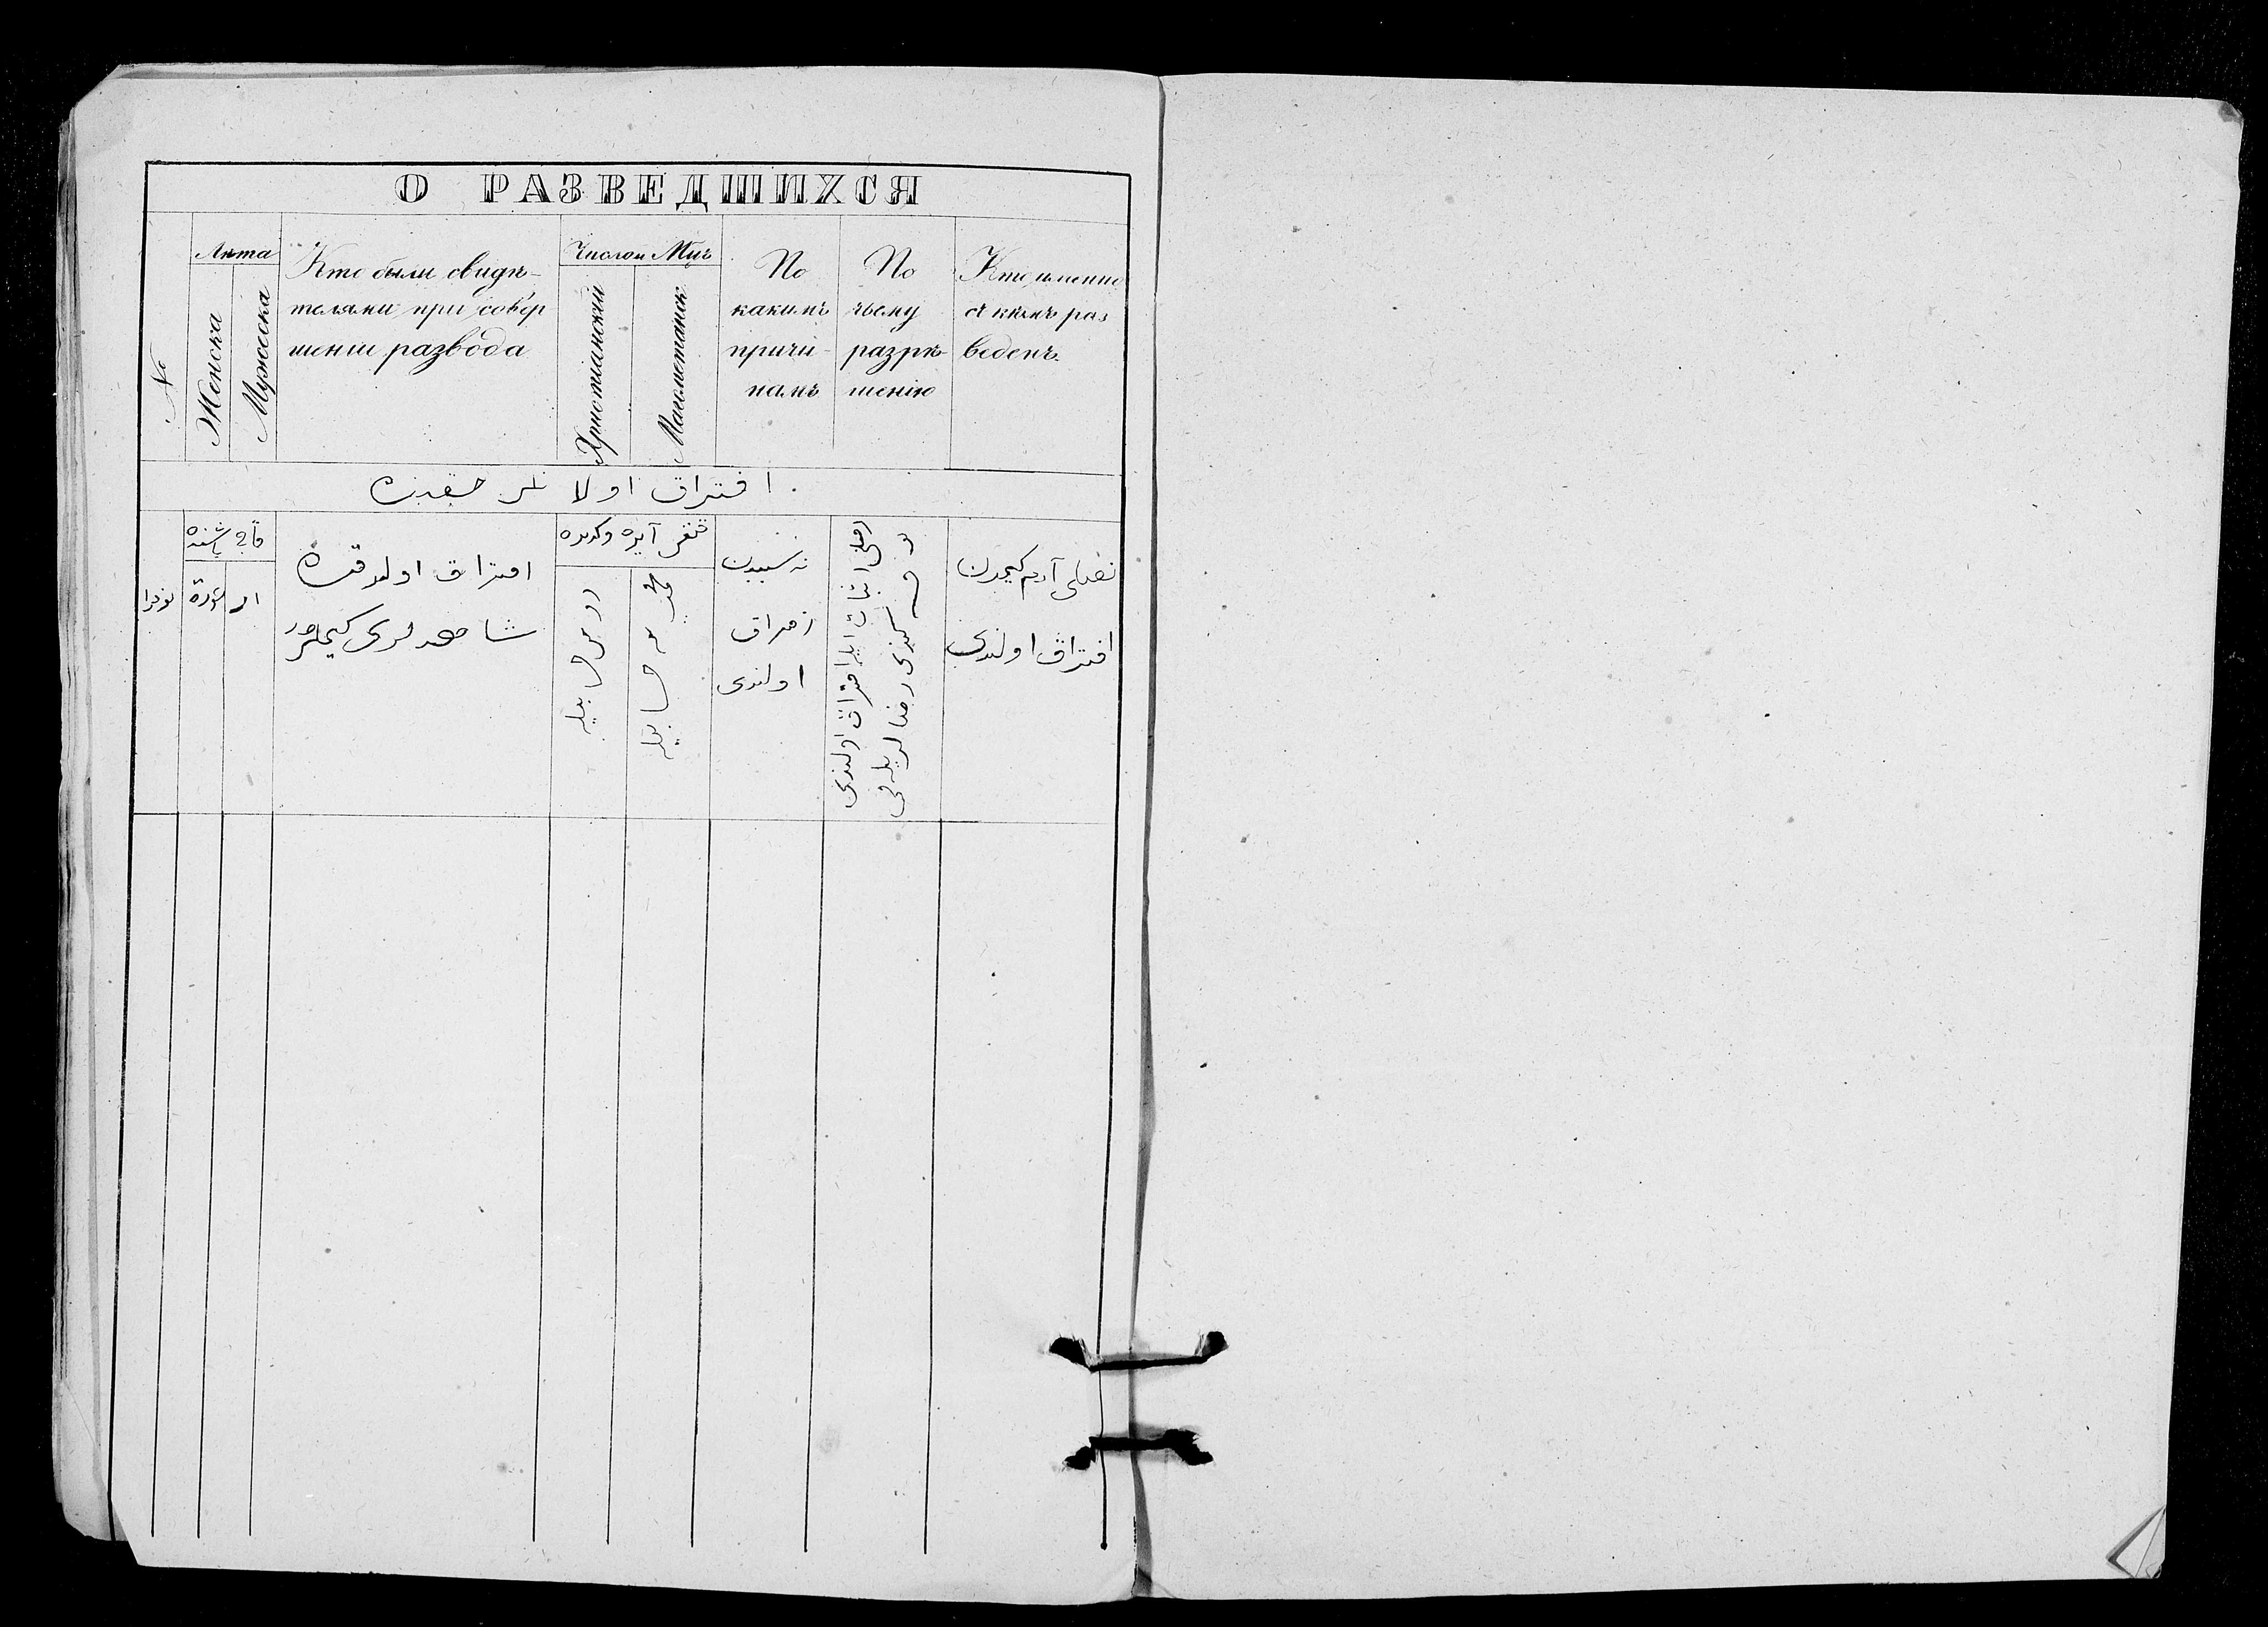 О РАЗВЕДШИХСЯ
№
Лѣта
Женска
Мужеска
Кто были свидѣ-
телями при совер
шеніи развода
Число и Мць
Христіанскій
Магометанск
По
какимъ
причи-
намъ
По
чьему
разрѣ-
шенію
Кто именно
съ кѣмъ раз
веденъ.
افتراق اولانلر حقنده
افتراق اولندقده
شاهدلری کیملردر
نه سببدن
افتراق
اولندی
آدم کیمدن
افتراق اولندی
افتراق اولندی